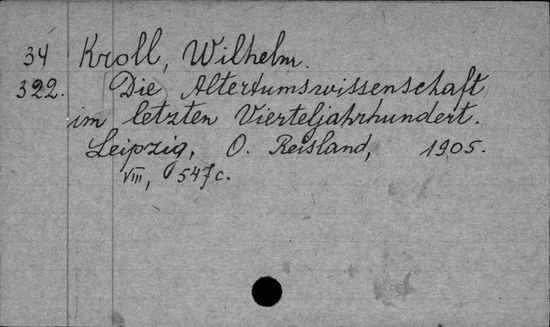 34 Kroll, Wilhelm.
322. Die Altertumswissenschaft
im letzten Vierteljahrhundert.
Leipzig, O. Reisland, 1905.
VIII, 547 c.